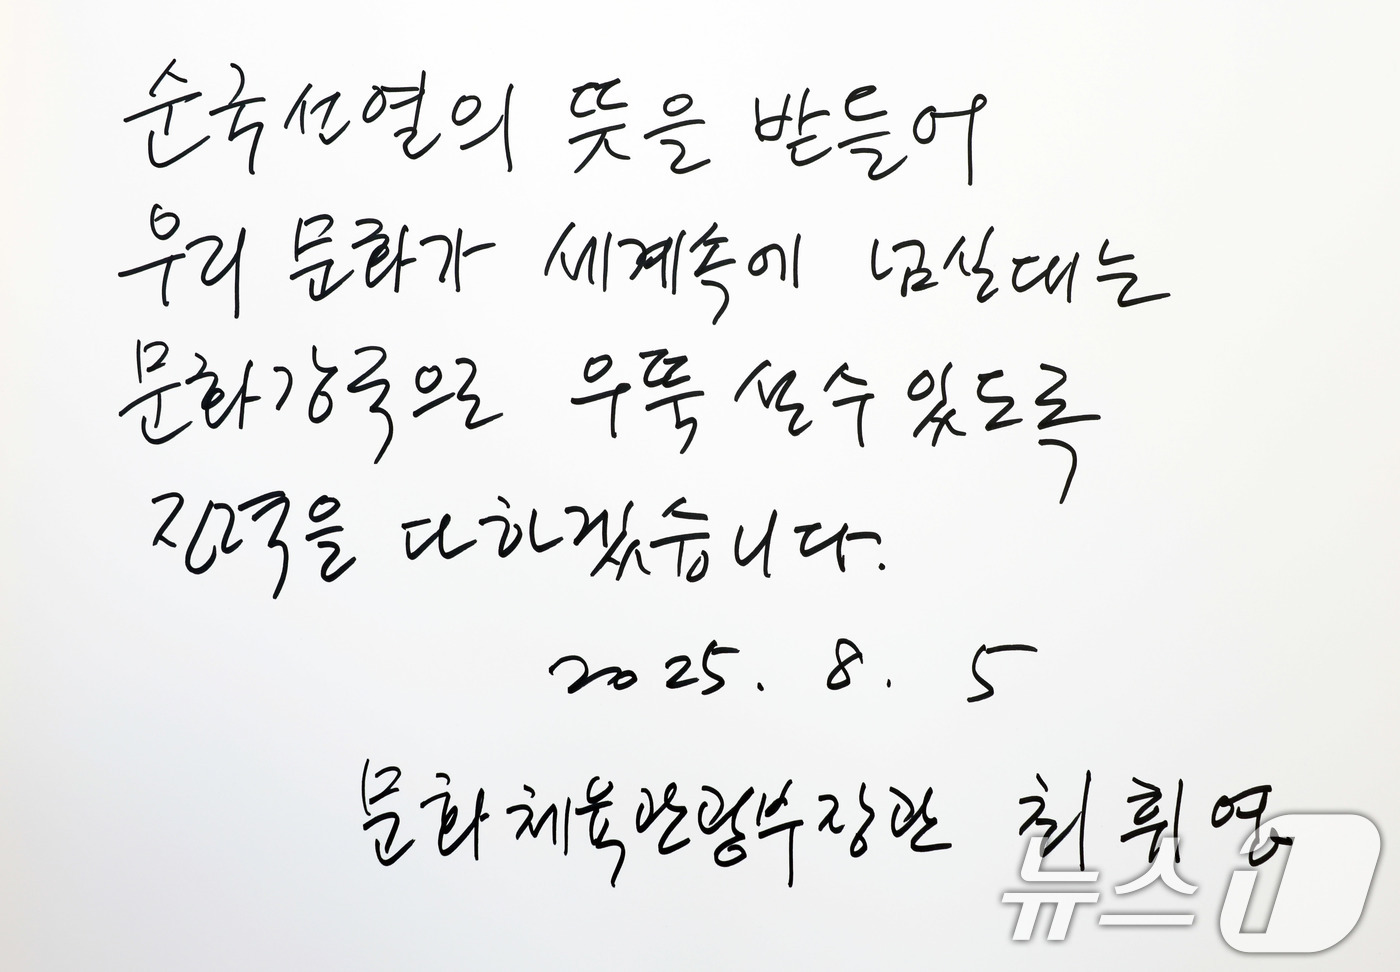 순국선열의 뜻을 받들어
우리 문화가 세계속에 넘실대는
문화강국으로 우뚝 설 수 있도록
진력을 다하겠습니다.
2025. 8. 5
문화체육관광부장관 최휘영
뉴스1